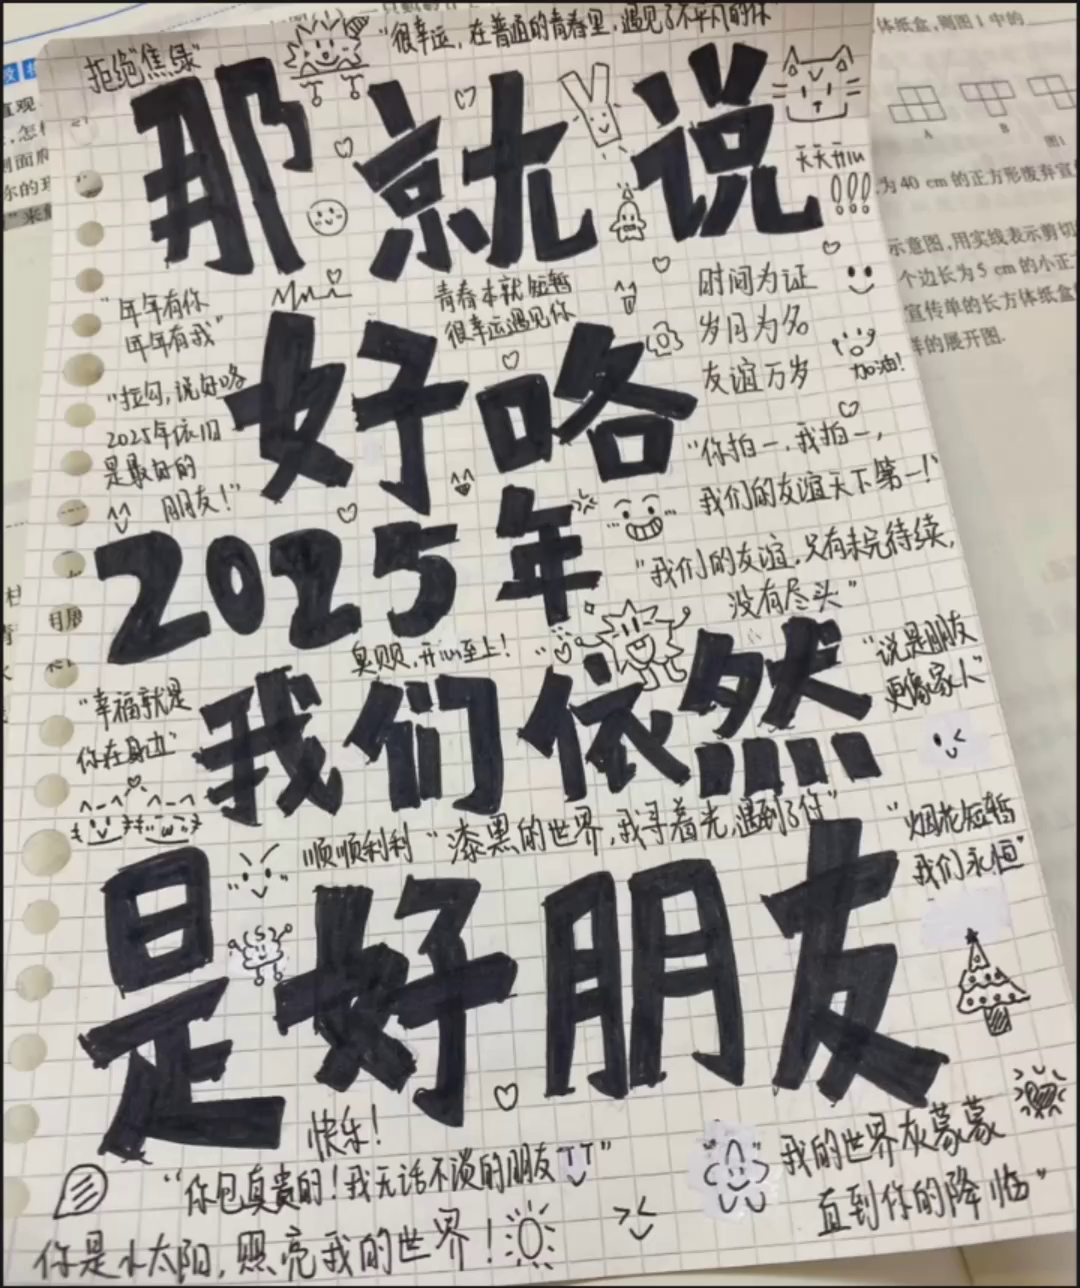 拒绝"焦绿"
"很幸运,在普通的青春里,遇见了不平凡的你"
那就说
天天开iu
!!!
"年年有你
年年有我"
青春本就短暂
很幸运遇见你
时间为证
岁月为名
友谊万岁
加油!
好咯
"拉勾,说好咯
2025年依旧
是最好的
朋友!"
"你拍一,我拍一,
我们的友谊天下第一!"
2025年
"我们的友谊,只有未完待续,
没有尽头"
臭贝贝,开iu至上!
"说是朋友
更像家人"
我们依然
"幸福就是
你在身边"
顺顺利利
"漆黑的世界,我寻着光,遇到了你"
"烟花短暂
我们永恒"
是好朋友
快乐!
"你包真贵的!我无话不谈的朋友"
我的世界灰蒙蒙
直到你的降临"
你是小太阳,照亮我的世界!
体纸盒,则图1中的
A
B
图1
为 40 cm 的正方形废弃宣
示意图,用实线表示剪切
个边长为 5 cm 的小正
宣传单的长方体纸盒
样的展开图.
直观